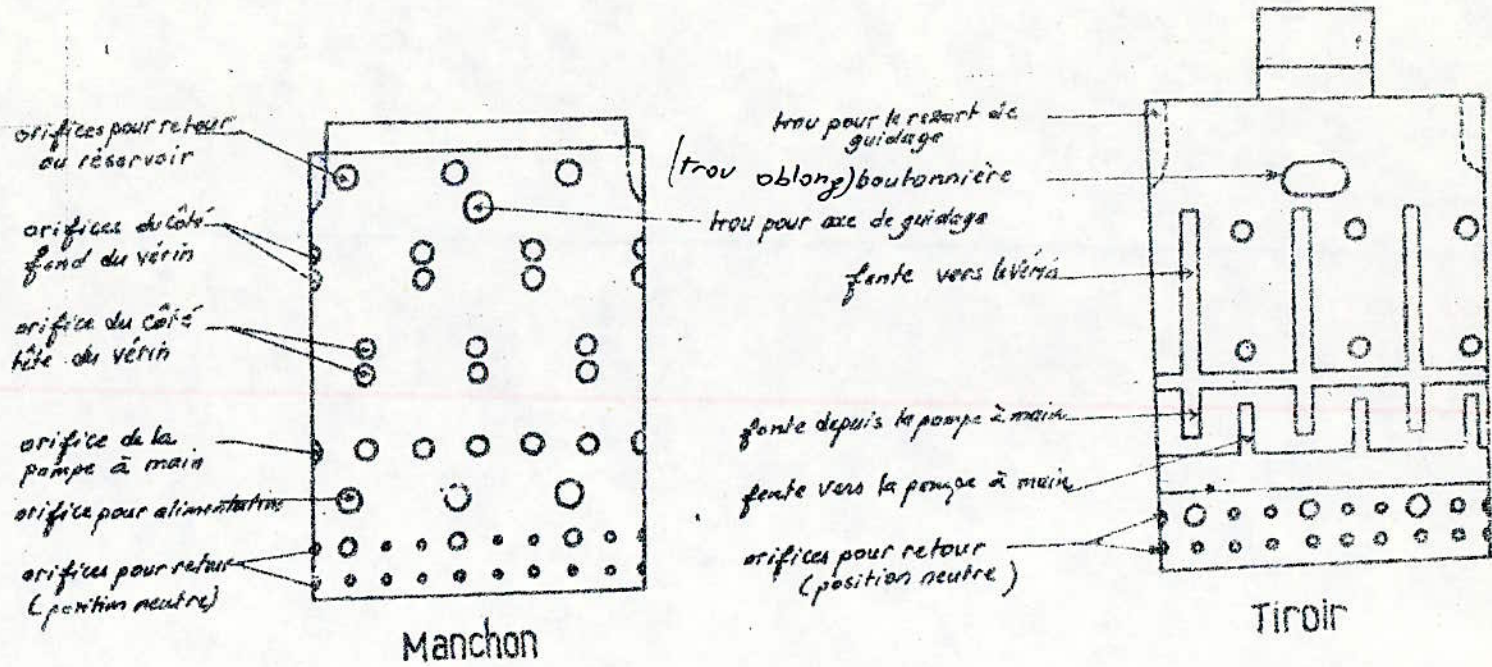 orifices pour retour
au réservoir
orifices du côté
fond du vérin
orifice du côté
tête du vérin
orifice de la
pompe à main
orifice pour alimentation
orifices pour retour
(position neutre)
Manchon
trou pour le ressort de
guidage
(trou oblong) boutonnière
trou pour axe de guidage
fente vers le vérin
fente depuis la pompe à main
fente vers la pompe à main
orifices pour retour
(position neutre)
Tiroir